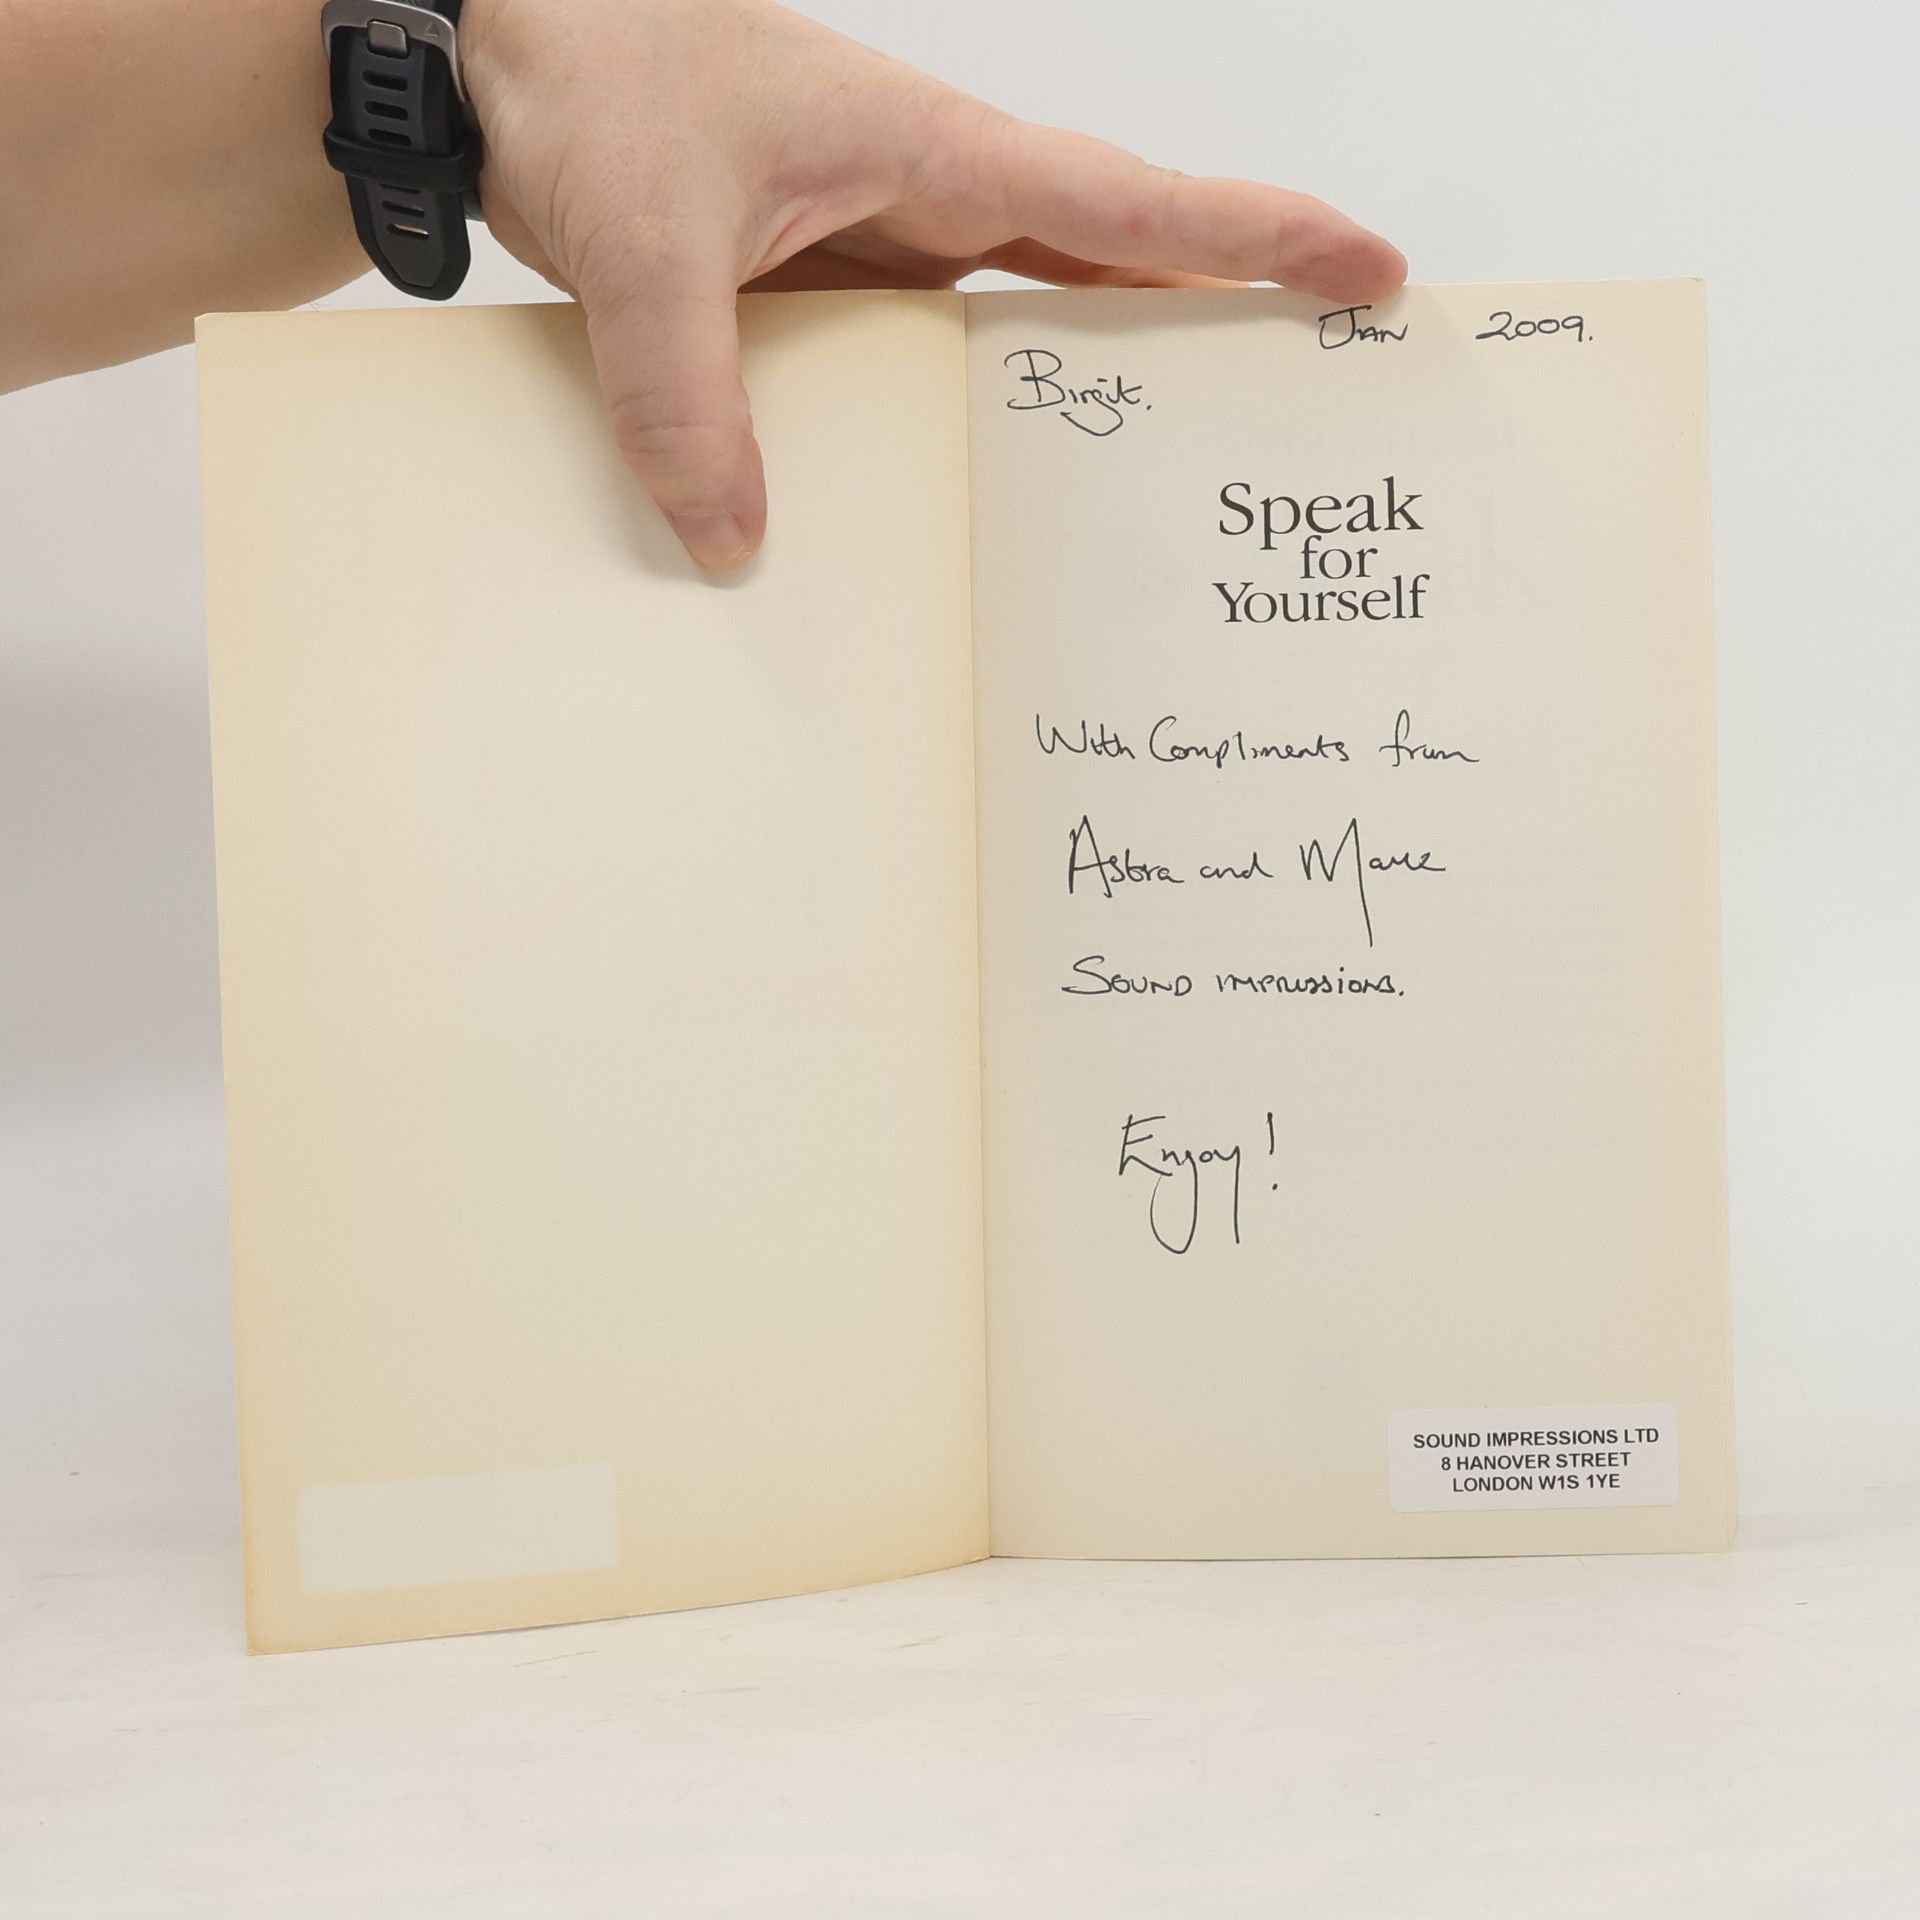 Jan 2009.
Birgit.
Speak
for
Yourself
With Compliments from
Astra and Marie
Sound impressions.
Enjoy!
SOUND IMPRESSIONS LTD
8 HANOVER STREET
LONDON W1S 1YE